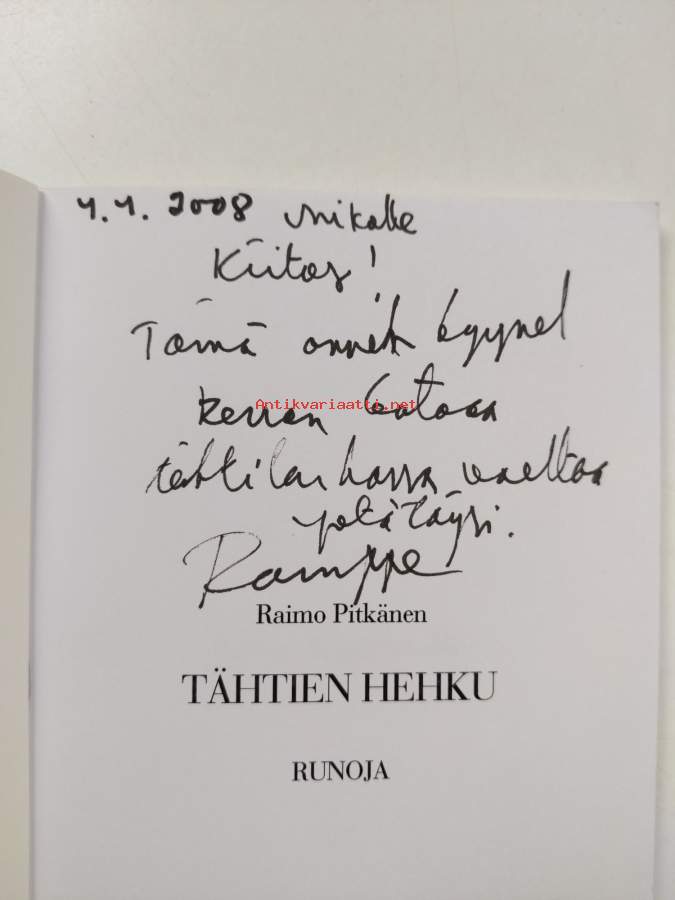 4.4. 2008 Mikalle
Kiitos!
Tämä onnen kyynel
kerran katoaa
Antikvariaatti.net
tähtilauhassa vaeltaa
joka täysi.
Ramppe
Raimo Pitkänen
TÄHTIEN HEHKU
RUNOJA